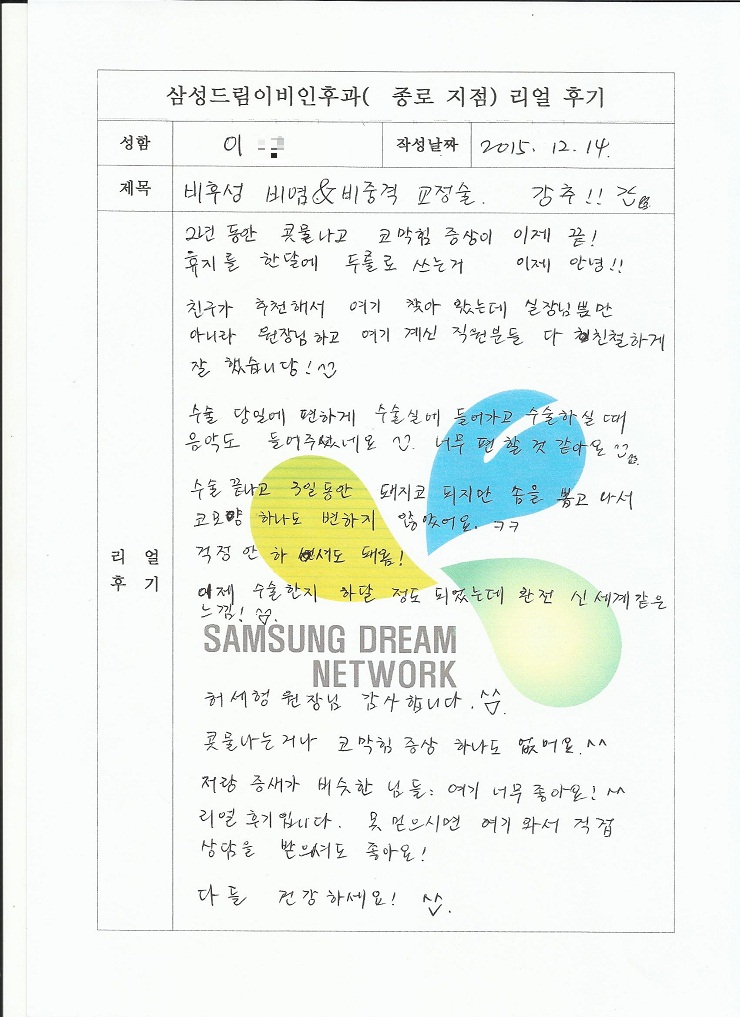 삼성드림이비인후과( 종로 지점) 리얼 후기
성함 이 작성날짜 2015. 12. 14.
제목 비후성 비염&비중격 교정술. 강추!! ^^
리얼 후기
21년 동안 콧물나고 코막힘 증상이 이제 끝!
휴지를 한달에 두룰로 쓰는거 이제 안녕!!
친구가 추천해서 여기 찾아 왔는데 실장님뿐만
아니라 원장님하고 여기 계신 직원분들 다 친철하게
잘 했습니당! ^^
수술 당일에 편하게 수술실에 들어가고 수술하실 때
음악도 들어주셨네요 ^^. 너무 편할 것 같아요 ^^
수술 끝나고 3일동안 돼지코 되지만 솜을 뽑고 나서
코모양 하나도 변하지 않았어요. ㅋㅋ
걱정 안 하셔도 돼욤!
이제 수술한지 하달 정도 되었는데 완전 신세계같은
느낌! ^^.
SAMSUNG DREAM
NETWORK
허세형 원장님 감사합니다. ^^.
콧물나는거나 코막힘 증상 하나도 없어요. ^^
저랑 증새가 비슷한 님들: 여기 너무 좋아요! ^^
리얼 후기입니다. 못 믿으시면 여기 와서 직접
상담을 받으셔도 좋아요!
다들 건강하세요! ^^.